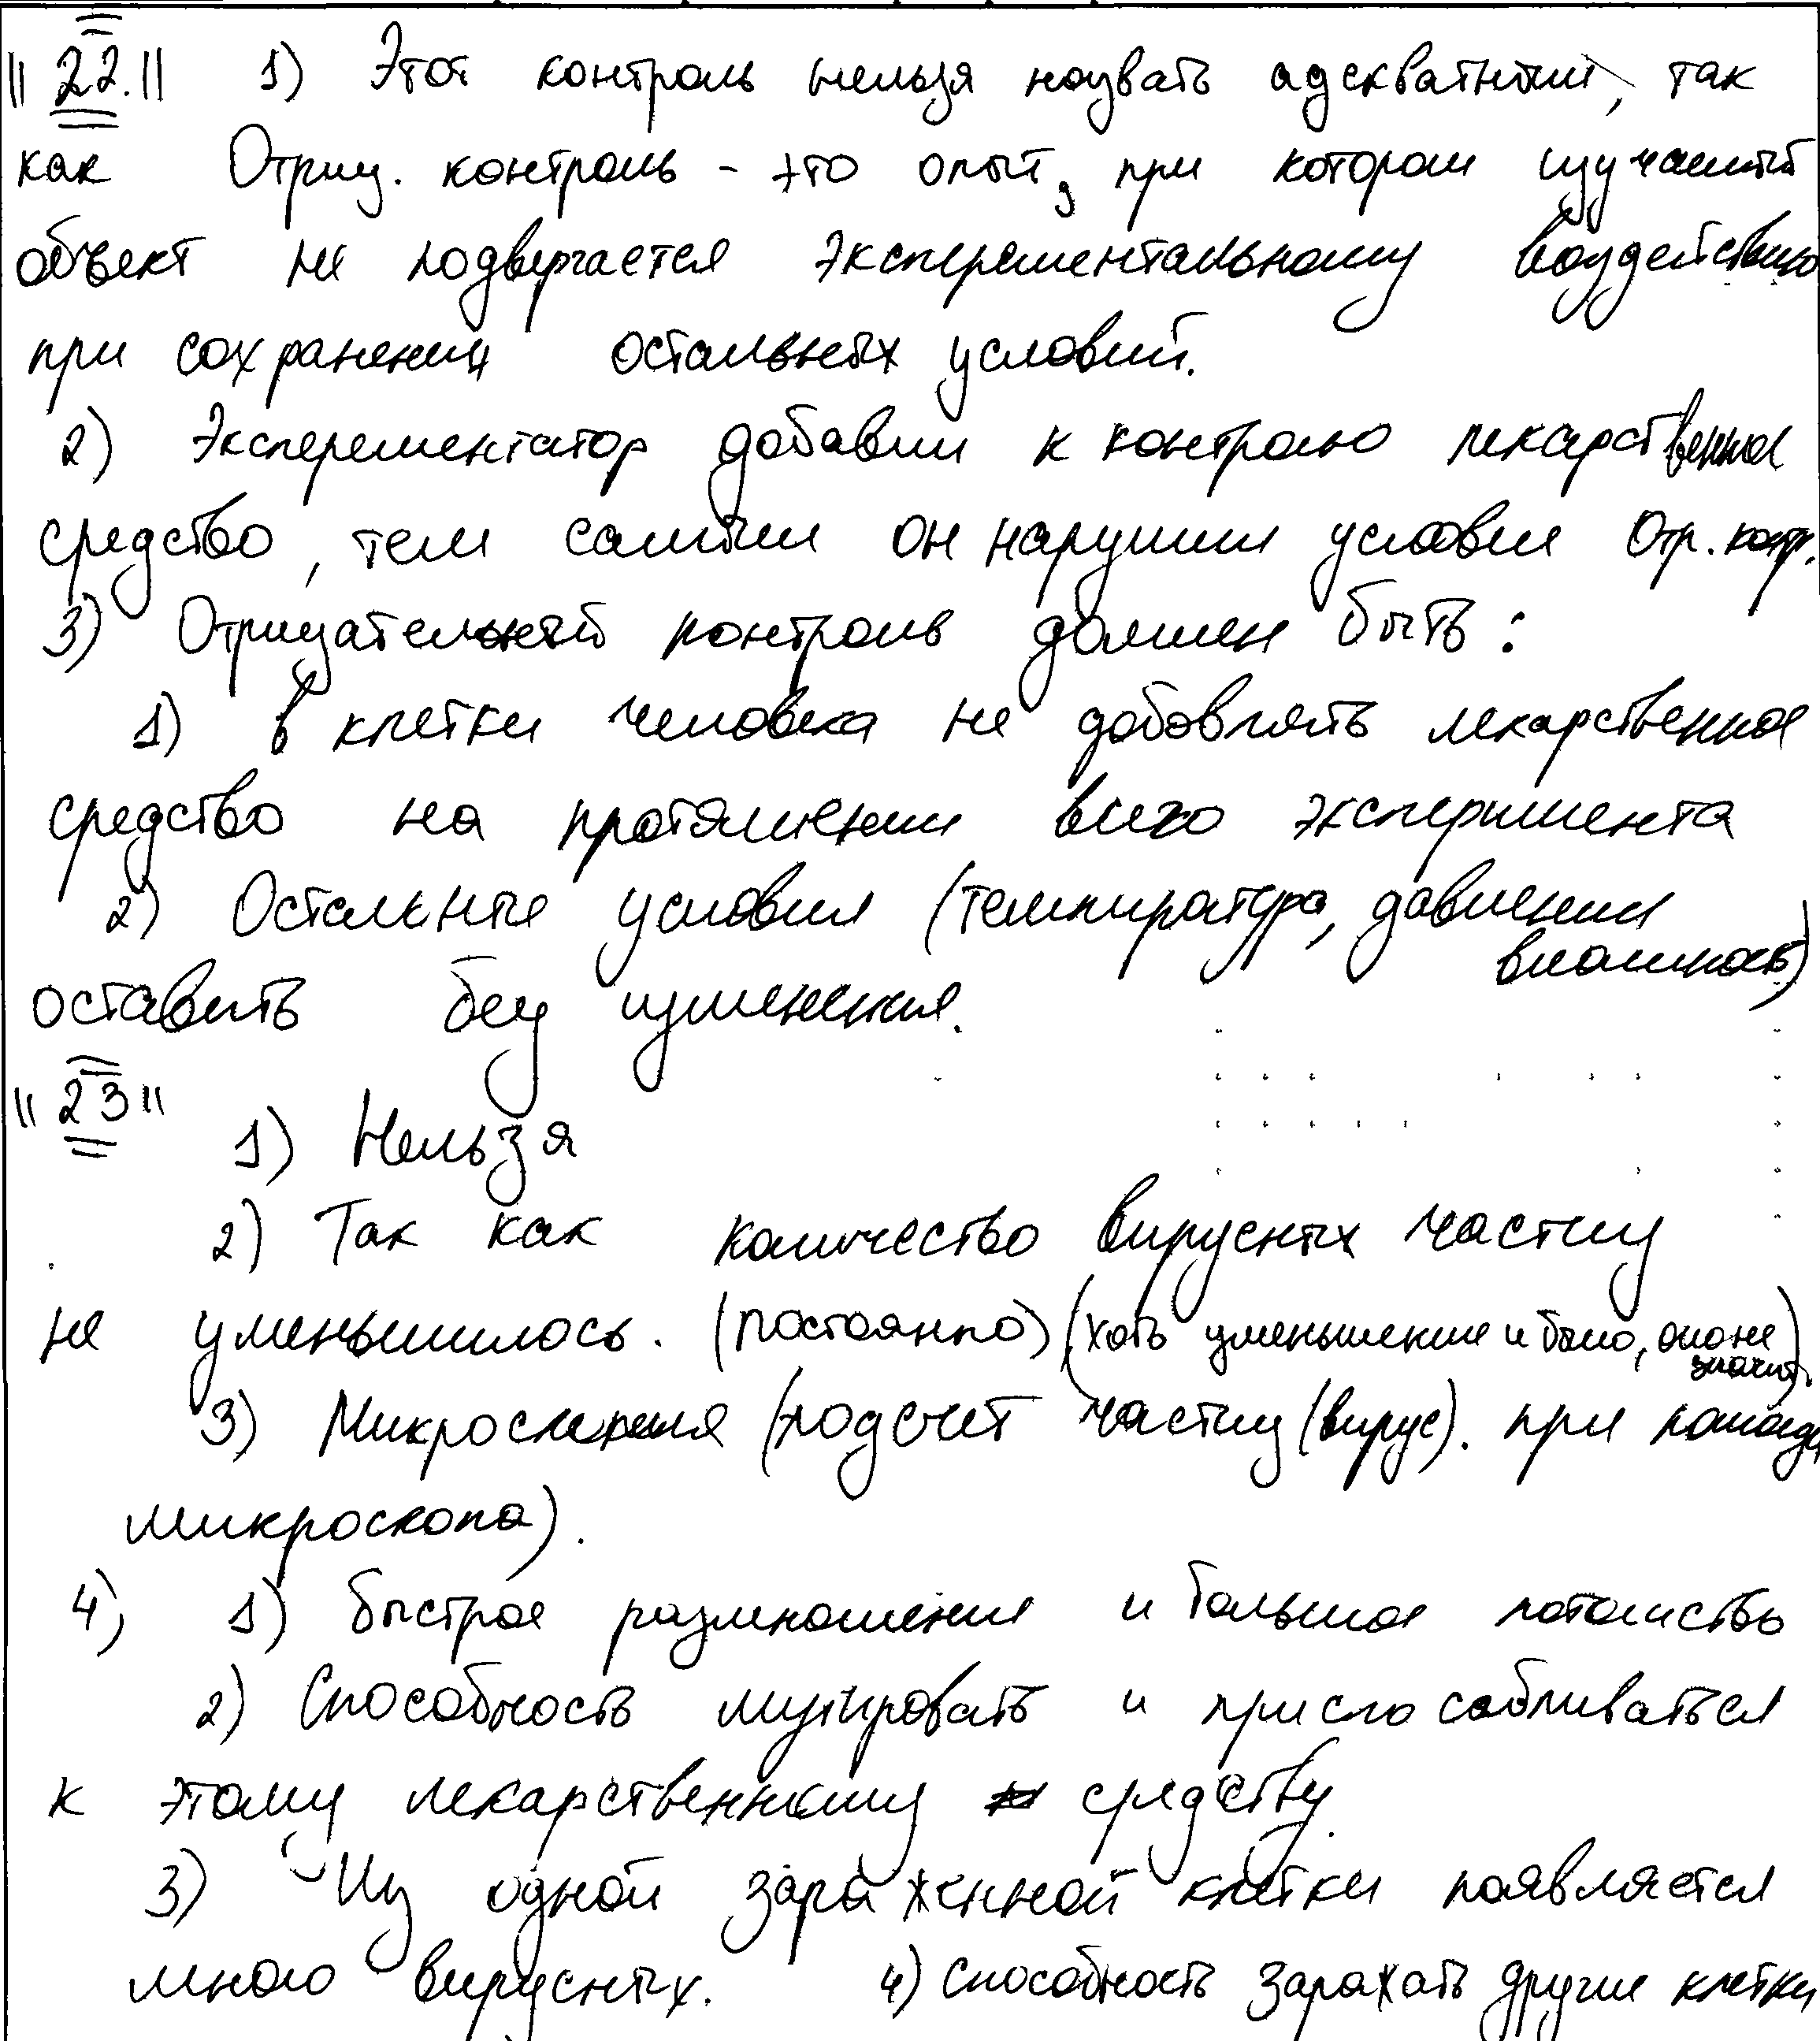 "22." 1) Этот контроль нельзя назвать адекватным, так
как Отриц. контроль - это опыт, при котором изучаемый
объект не подвергается эксперементальному воздействию
при сохранении остальных условий.
2) Эксперементатор добавил к контролю лекарственное
средство, тем самым он нарушил условие Отр. контр.
3) Отрицательный контроль должен быть:
1) в клетки человека не добовлять лекарственное
средство на протяжении всего эксперимента
2) Остальные условия (температура, давление
влажность)
оставить без изменения.
"23" 1) Нельзя
2) Так как количество вирусных частиц
не уменьшилось. (постоянно) (хоть уменьшение и было, оно не
значит.)
3) Микроскопия (подсчет частиц (вирус). при помощи
микроскопа).
4) 1) быстрое размножение и большое потомство
2) Способность мутировать и приспосабливаться
к этому лекарственному средству.
3) Из одной зараженной клетки появляется
много вирусных. 4) Способность заражать другие клетки